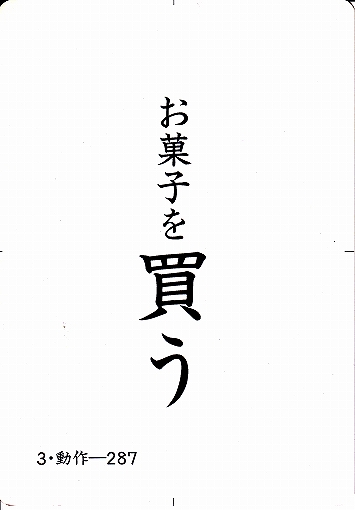 お菓子を買う
3・動作―287